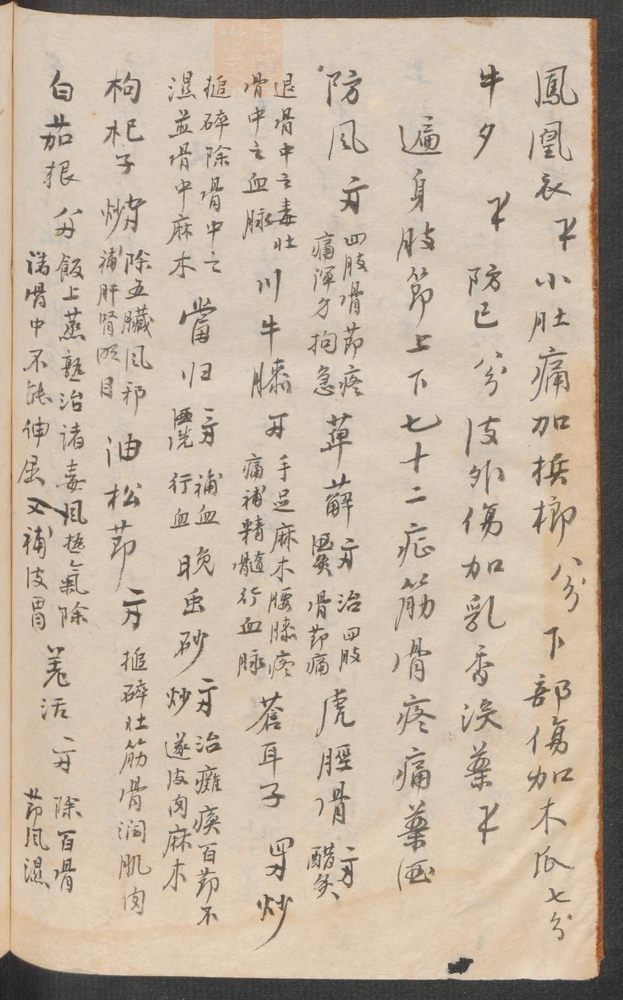 鳳凰衣 小肚痛加梹榔 分 下部傷加木瓜七分
牛夕 防已 分 皮外傷加乳香没藥
遍身肢節上下七十二症筋骨疼痛藥酒
防風 四肢骨節疼
痛渾身拘急 萆薢 治四肢
骨節痛 虎脛骨 醋炙
退骨中之毒壯
骨中之血脉 川牛膝 手足麻木腰膝疼
痛補精髓行血脉 蒼耳子 炒
搥碎除骨中之
濕並骨中麻木 當归 酒洗 補血
行血 晚蚕砂 炒 治癱瘓百節不
遂皮肉麻木
枸杞子 炒 除五臟風邪
補肝腎明目 油松節 搥碎壯筋骨潤肌肉
白茄根 飯上蒸熟治諸毒風熱氣除
諸骨中不能伸屈又補皮胃 羗活 除百骨
節風濕